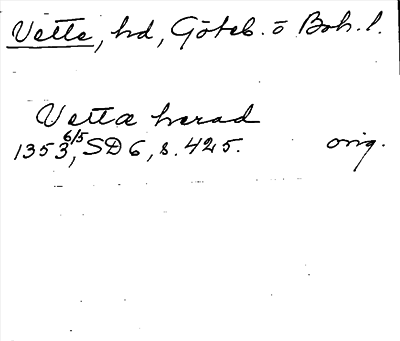 Vette, hd, Göteb. o Boh. l.
Vettæ herad
1353 6/5, SD 6, s. 425. orig.